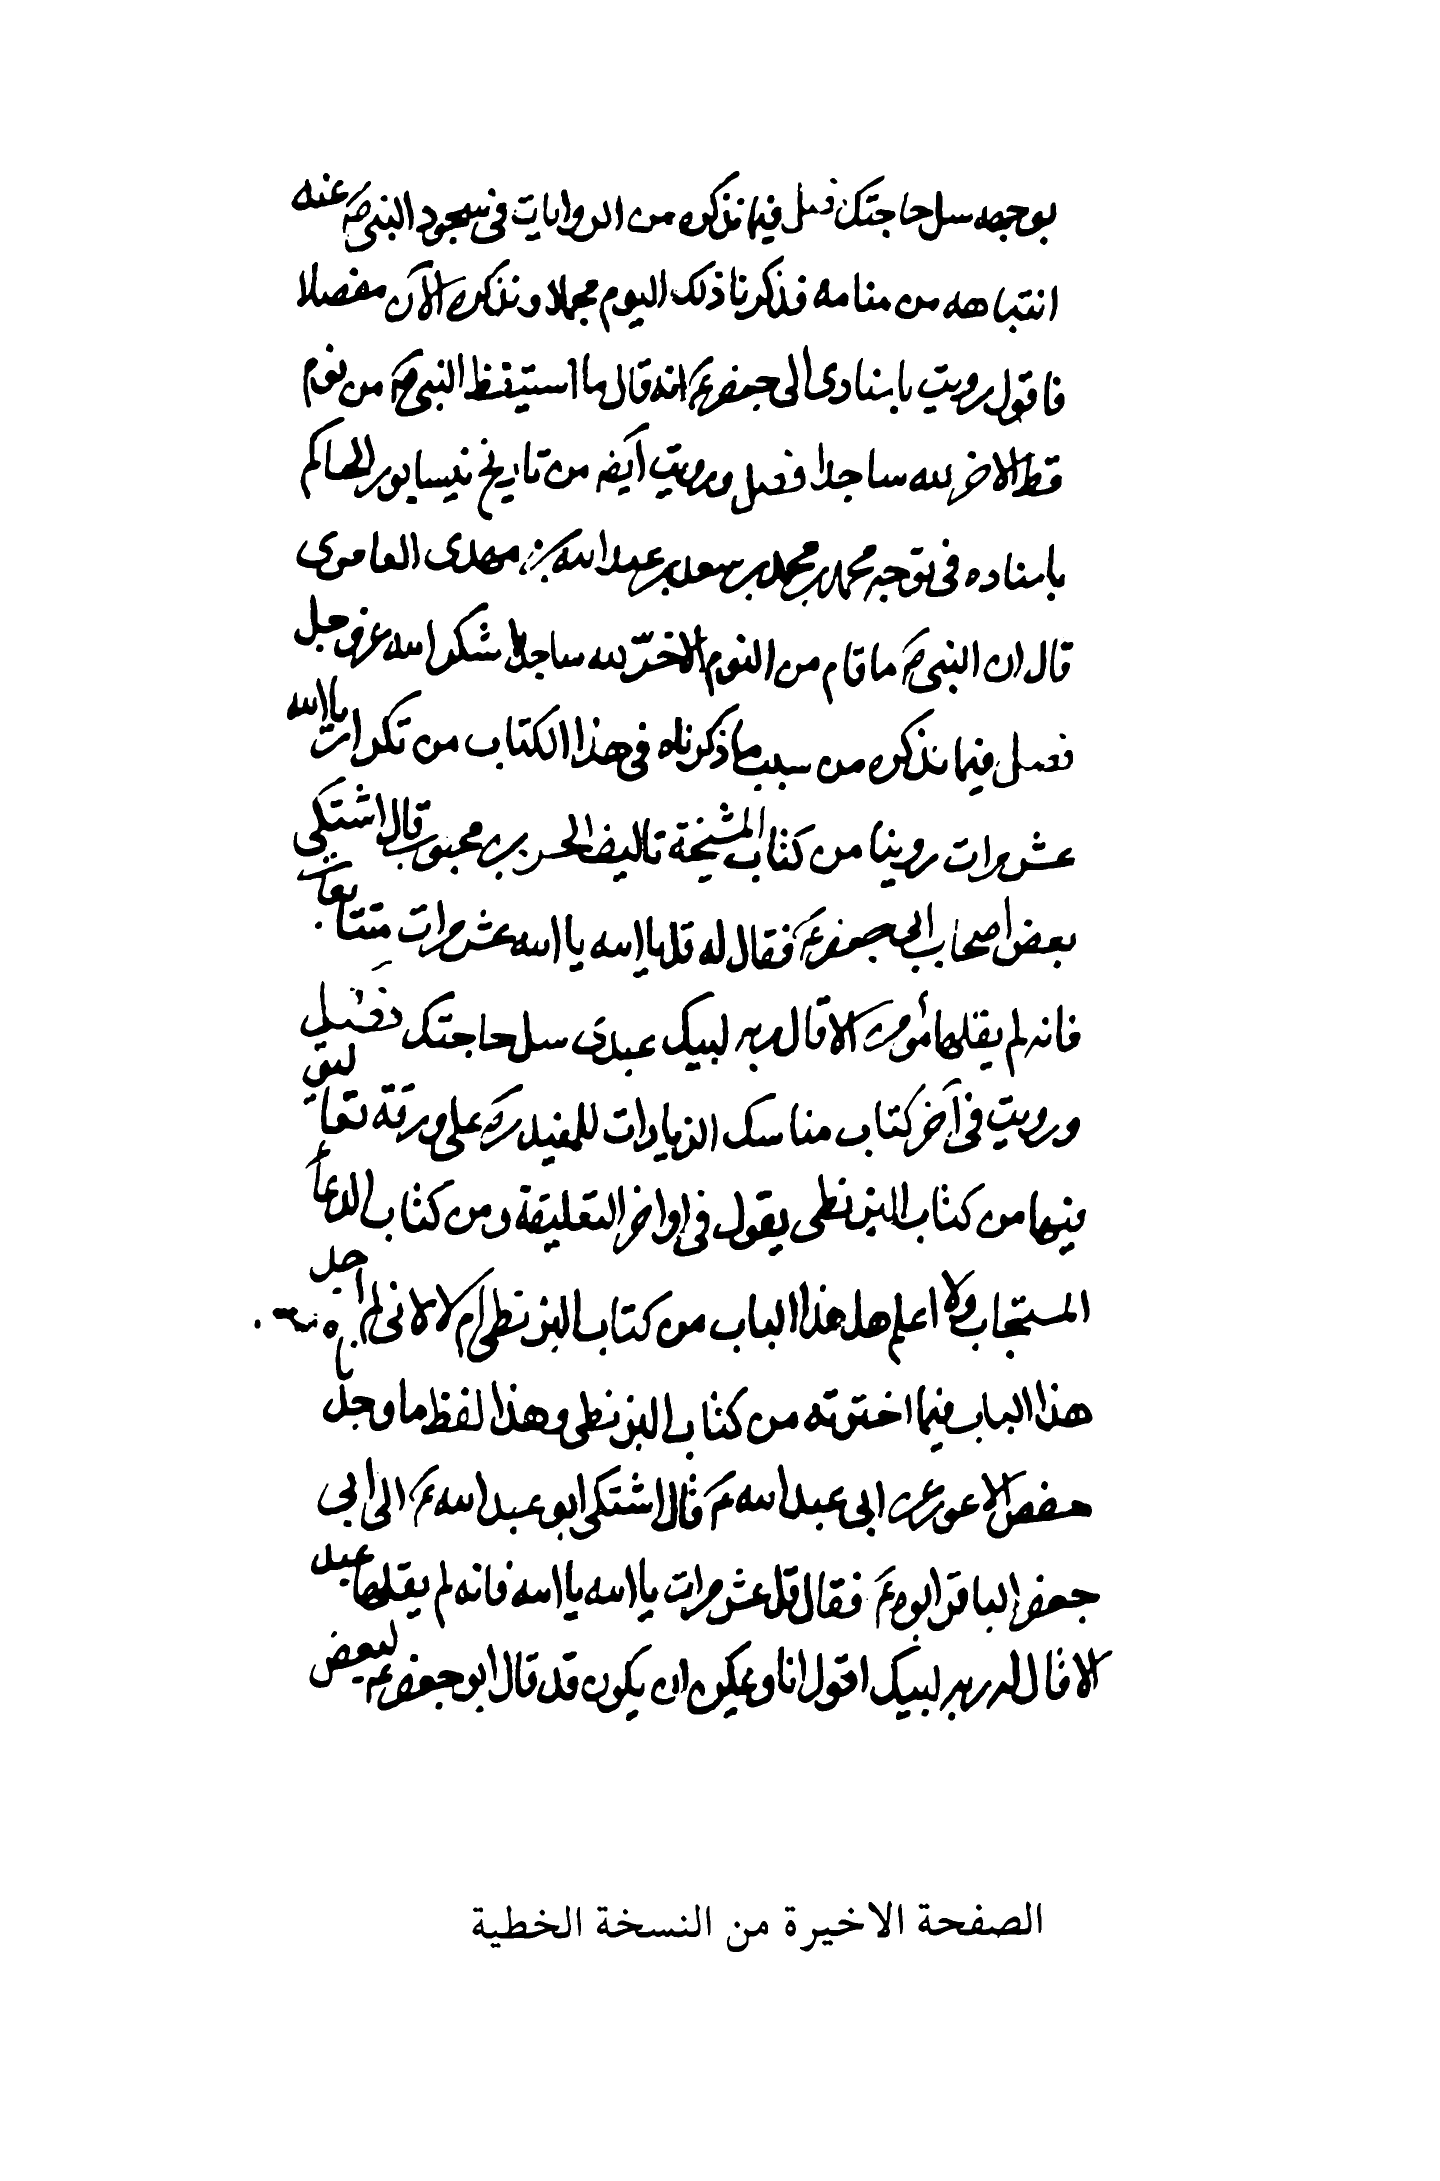 بوجهه سل حاجتك فصل فيما نذكره من الروايات في سجود النبي ص عند
انتباهه من منامه فذكرنا ذلك اليوم مجملا ونذكره الآن مفصلا
فاقول رويت باسنادى الى جعفر ع انه قال ما استيقظ النبي ص من نوم
قط الا خر لله ساجدا فصل ورويت ايضا من تاريخ نيسابور للحاكم
باسناده فى توجه محمد بن محمد بن سعد بن عبد الله بن مهدى العامرى
قال ان النبي ص ما قام من النوم الا خرّ لله ساجدا شكرا لله عز وجل
فصل فيما نذكره من سبب ما ذكرناه فى هذا الكتاب من تكرار يا الله
عشر مرات روينا من كتاب المشيخة تاليف الحسن بن محبوب قال اشتكى
بعض اصحاب ابى جعفر ع فقال له قل يا الله يا الله عشر مرات متتابعات
فانه لم يقلها مؤمن الا قال ربه لبيك عبدى سل حاجتك فصل
ورويت فى آخر كتاب مناسك الزيارات للمفيد ره على ورقة تعليق
فيها من كتاب البزنطى يقول فى اواخر التعليقة ومن كتاب الدعاء
المستجاب ولا اعلم هل هذا الباب من كتاب البزنطى ام لا لانى لم اجد
هذا الباب فيما اخترته من كتاب البزنطى وهذا لفظ ما وجد
حفص الاعور عن ابى عبد الله ع قال اشتكى ابو عبد الله ع الى ابى
جعفر الباقر ابوه ع فقال قل عشر مرات يا الله يا الله فانه لم يقلها عبد
الا قال له ربه لبيك اقول انا ويمكن ان يكون قد قال ابو جعفر ع لبعض
الصفحة الاخيرة من النسخة الخطية